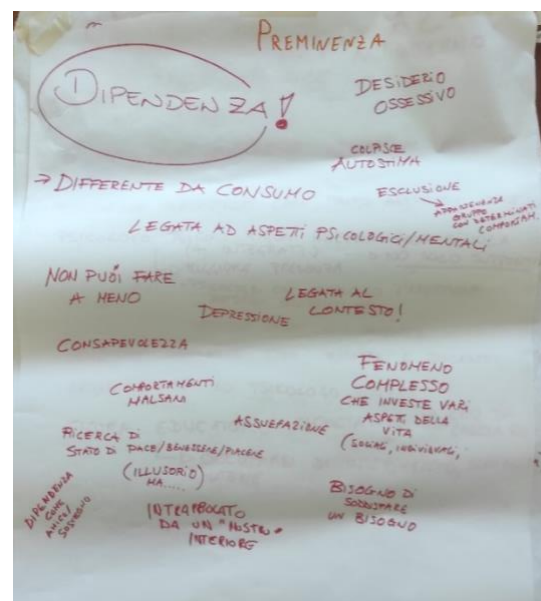 PREMINENZA
DIPENDENZA!
DESIDERIO
OSSESSIVO
COLPISCE
AUTOSTIMA
→ DIFFERENTE DA CONSUMO
ESCLUSIONE
APPARTENENZA
GRUPPO
CON DETERMINATI
COMPORTAM.
LEGATA AD ASPETTI PSICOLOGICI/MENTALI
NON PUOI FARE
A MENO
LEGATA AL
CONTESTO!
DEPRESSIONE
CONSAPEVOLEZZA
FENOMENO
COMPLESSO
CHE INVESTE VARI
ASPETTI DELLA
VITA
(SOCIALI, INDIVIDUALI,
COMPORTAMENTI
MALSANI
ASSUEFAZIONE
RICERCA DI
STATO DI PACE/BENESSERE/PIACERE
(ILLUSORIO)
MA.....
DIPENDENZA
COME
AMICO/
SOSTEGNO
INTRAPPOLATO
DA UN "MOSTRO"
INTERIORE
BISOGNO DI
SODDISFARE
UN BISOGNO